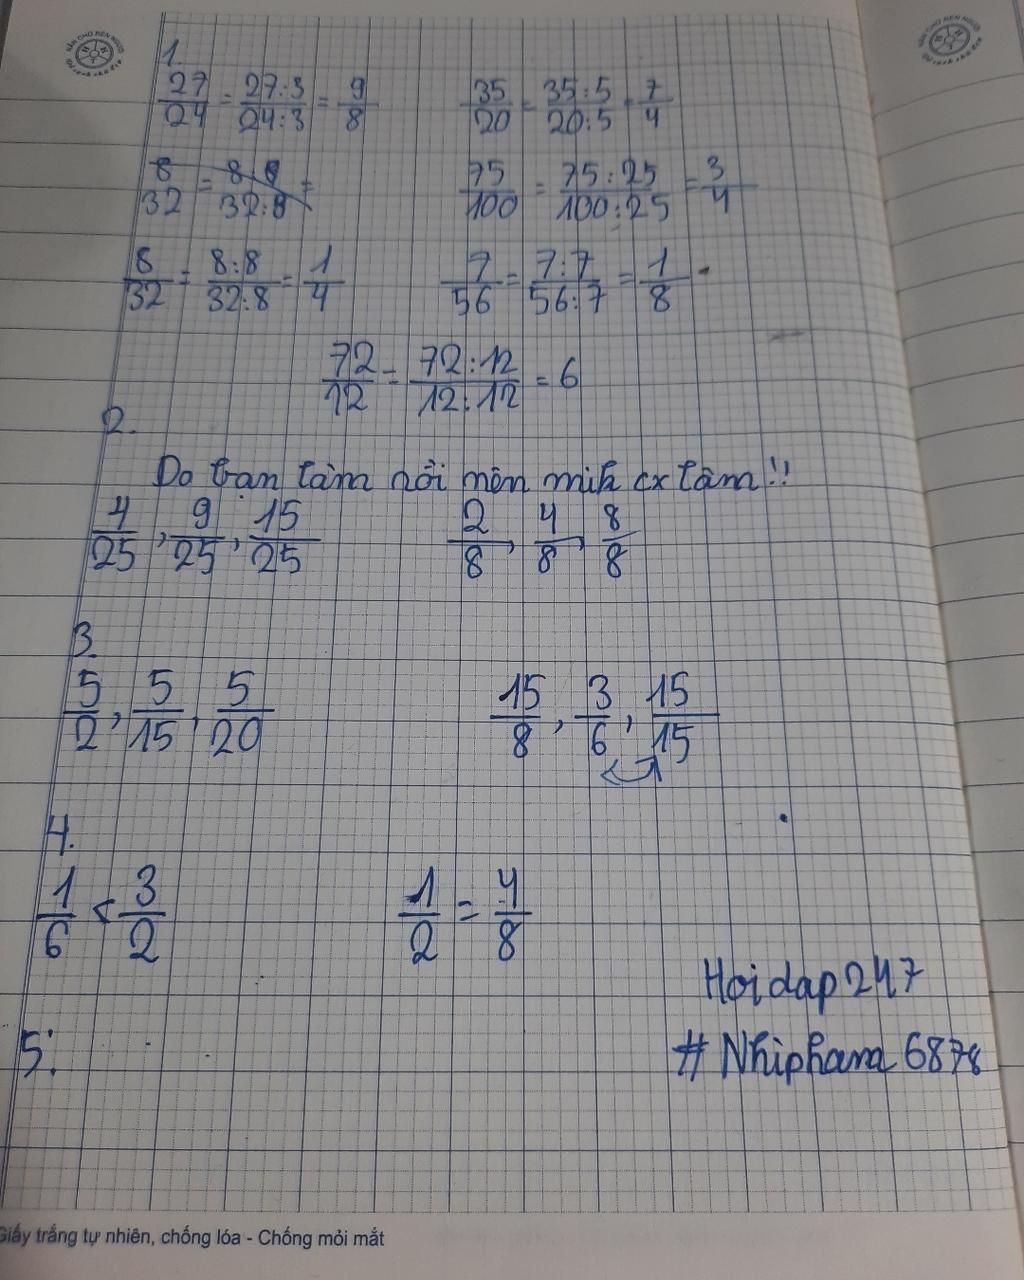 1.
27/24 = 27:3/24:3 = 9/8 35/20 = 35:5/20:5 = 7/4
8/32 = 8:8/32:8 = 75/100 = 75:25/100:25 = 3/4
8/32 = 8:8/32:8 = 1/4 7/56 = 7:7/56:7 = 1/8
72/12 = 72:12/12:12 = 6
2.
Do bạn làm rồi nên mik cx làm!!
4/25, 9/25, 15/25 2/8, 4/8, 8/8
3.
5/2, 5/15, 5/20 15/8, 3/6, 15/15
4.
1/6 < 3/2 1/2 = 4/8
Hoidap247
5:
# Nhipham6878
Giấy trắng tự nhiên, chống lóa - Chống mỏi mắt